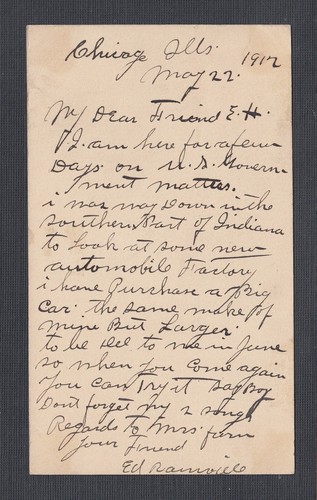 Chicago Ills. 1912
May 22.
My Dear Friend E. H.
I. am here for a few
Days. on U. S. Govern-
ment matters.
i was way Down in the
southern Part of Indiana
to Look at some new
automobile Factory
i have Purchase a Big
Car. the same make of
mine But Larger.
to be Del to me in June
so when you come again
you can try it say Boy
Dont forget my 2 songs
Regards to Mrs.
your Friend
Ed Rainville